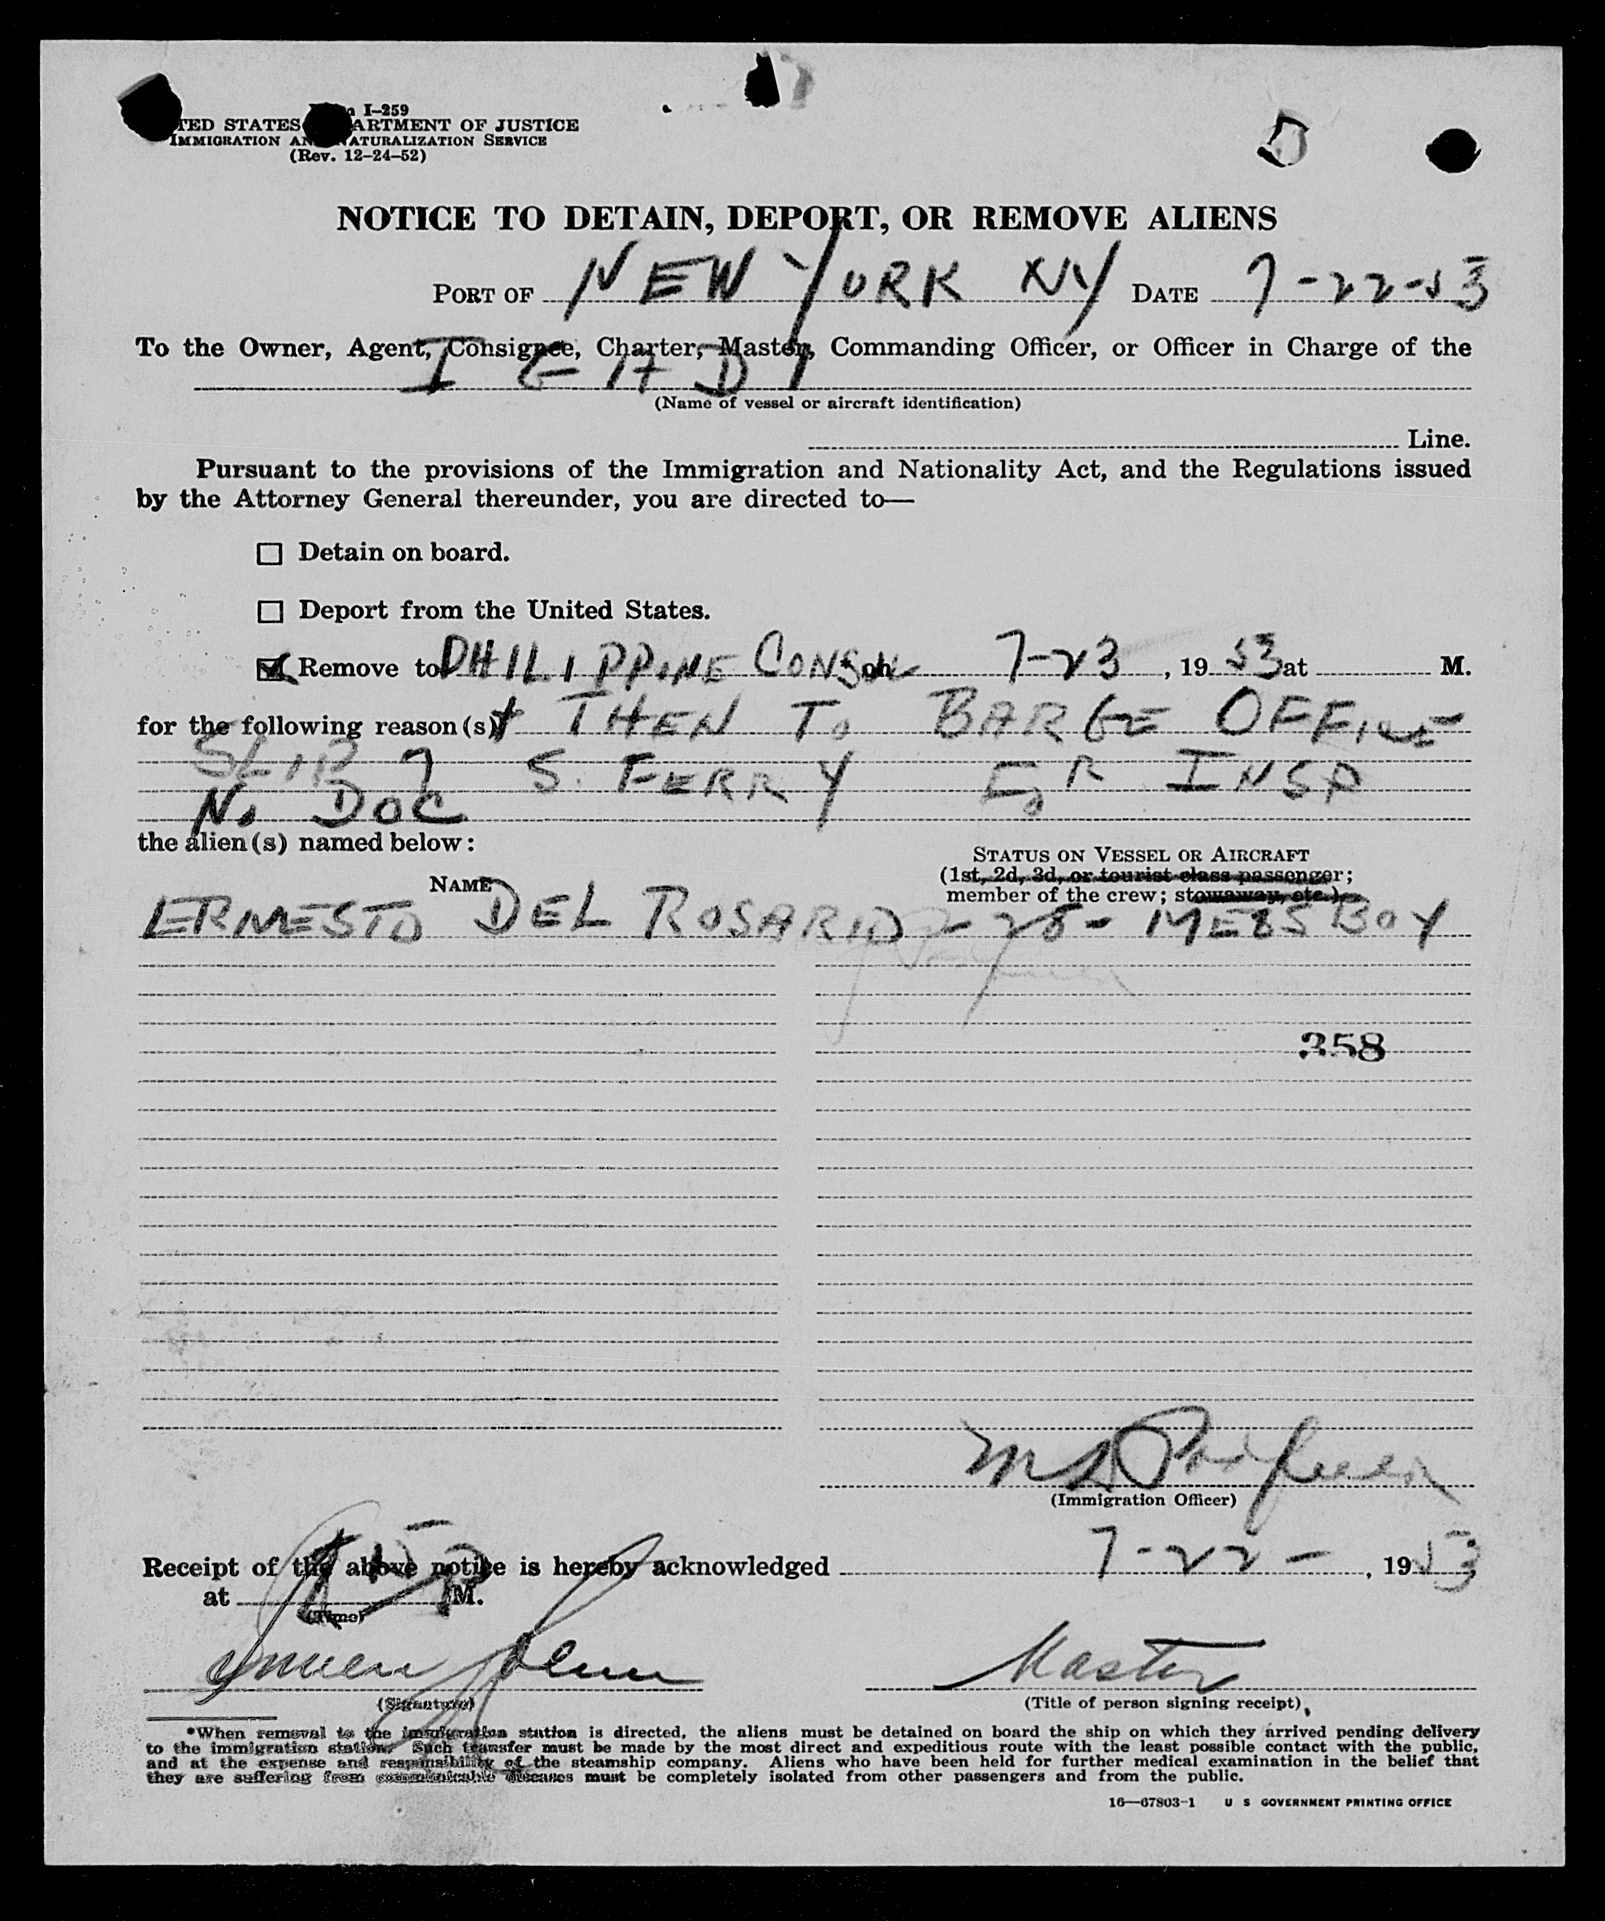 I-259
STATES DEPARTMENT OF JUSTICE
IMMIGRATION AND NATURALIZATION SERVICE
(Rev. 12-24-52)
NOTICE TO DETAIN, DEPORT, OR REMOVE ALIENS
PORT OF NEW YORK NY DATE 7-22-53
To the Owner, Agent, Consignee, Charter, Master, Commanding Officer, or Officer in Charge of the
(Name of vessel or aircraft identification)
Line.
Pursuant to the provisions of the Immigration and Nationality Act, and the Regulations issued
by the Attorney General thereunder, you are directed to—
☐ Detain on board.
☐ Deport from the United States.
☑ Remove to PHILIPPINE CONSUL * on 7-23, 1953 at M.
for the following reason(s) THEN TO BARGE OFFICE
SLIP 7 S. FERRY FOR INSP
NO DOC
the alien(s) named below:
STATUS ON VESSEL OR AIRCRAFT
NAME (1st, 2d, 3d, or tourist class passenger;
member of the crew; stowaway, etc.)
ERNESTO DEL ROSARIO - 28 - MESSBOY
358
(Immigration Officer)
Receipt of the above notice is hereby acknowledged 7-22-, 1953
at M.
(Time)
Master
(Signature) (Title of person signing receipt)
*When removal to the immigration station is directed, the aliens must be detained on board the ship on which they arrived pending delivery
to the immigration station. Such transfer must be made by the most direct and expeditious route with the least possible contact with the public,
and at the expense and responsibility of the steamship company. Aliens who have been held for further medical examination in the belief that
they are suffering from communicable diseases must be completely isolated from other passengers and from the public.
16—67803-1 U S GOVERNMENT PRINTING OFFICE